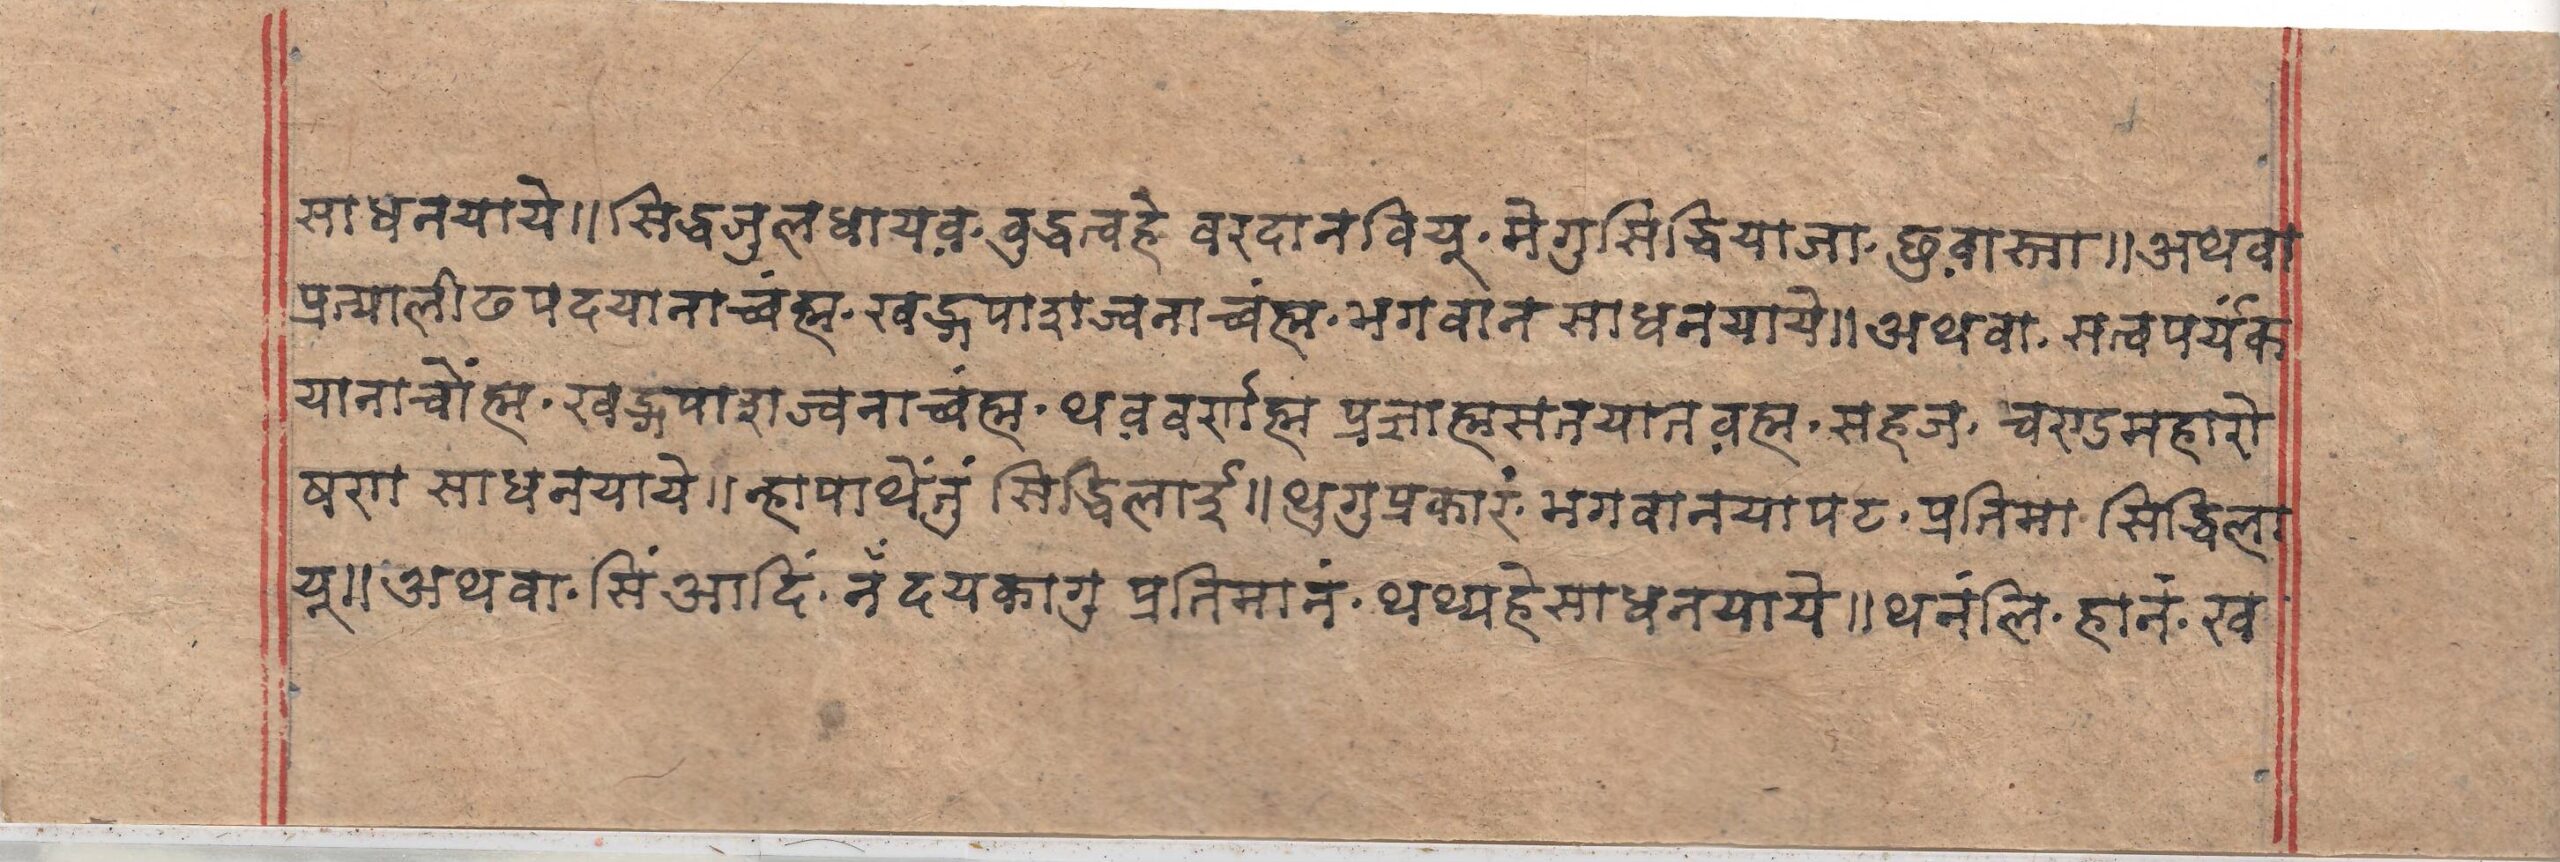 साधनयाये॥ सिद्धजुलधायव़· वुद्धत्वहे वरदानवियू· मेगुसिद्धियाजा· छुव़ास्ना॥ अथवा
प्रत्यालीढपदयानाच्वंह्म· खड्गपाशज्वनाच्वंह्म· भगवान साधनयाये॥ अथवा· सत्वपर्यंक
यानाचोंह्म· खड्गपाशज्वनाच्वंह्म· थव़वर्णह्म प्रज्ञाह्मसनयानव़ह्म· सहज· चण्डमहारो
षण साधनयाये॥ न्हापाथेंतुं सिद्धिलाई॥ थुगुप्रकारं· भगवानयापट· प्रतिमा सिद्धिला
यू॥ अथवा· सिं आदिं· नँ दयकागु प्रतिमानं· थथ्यहेसाधनयाये॥ थनंलि· हानं· ख